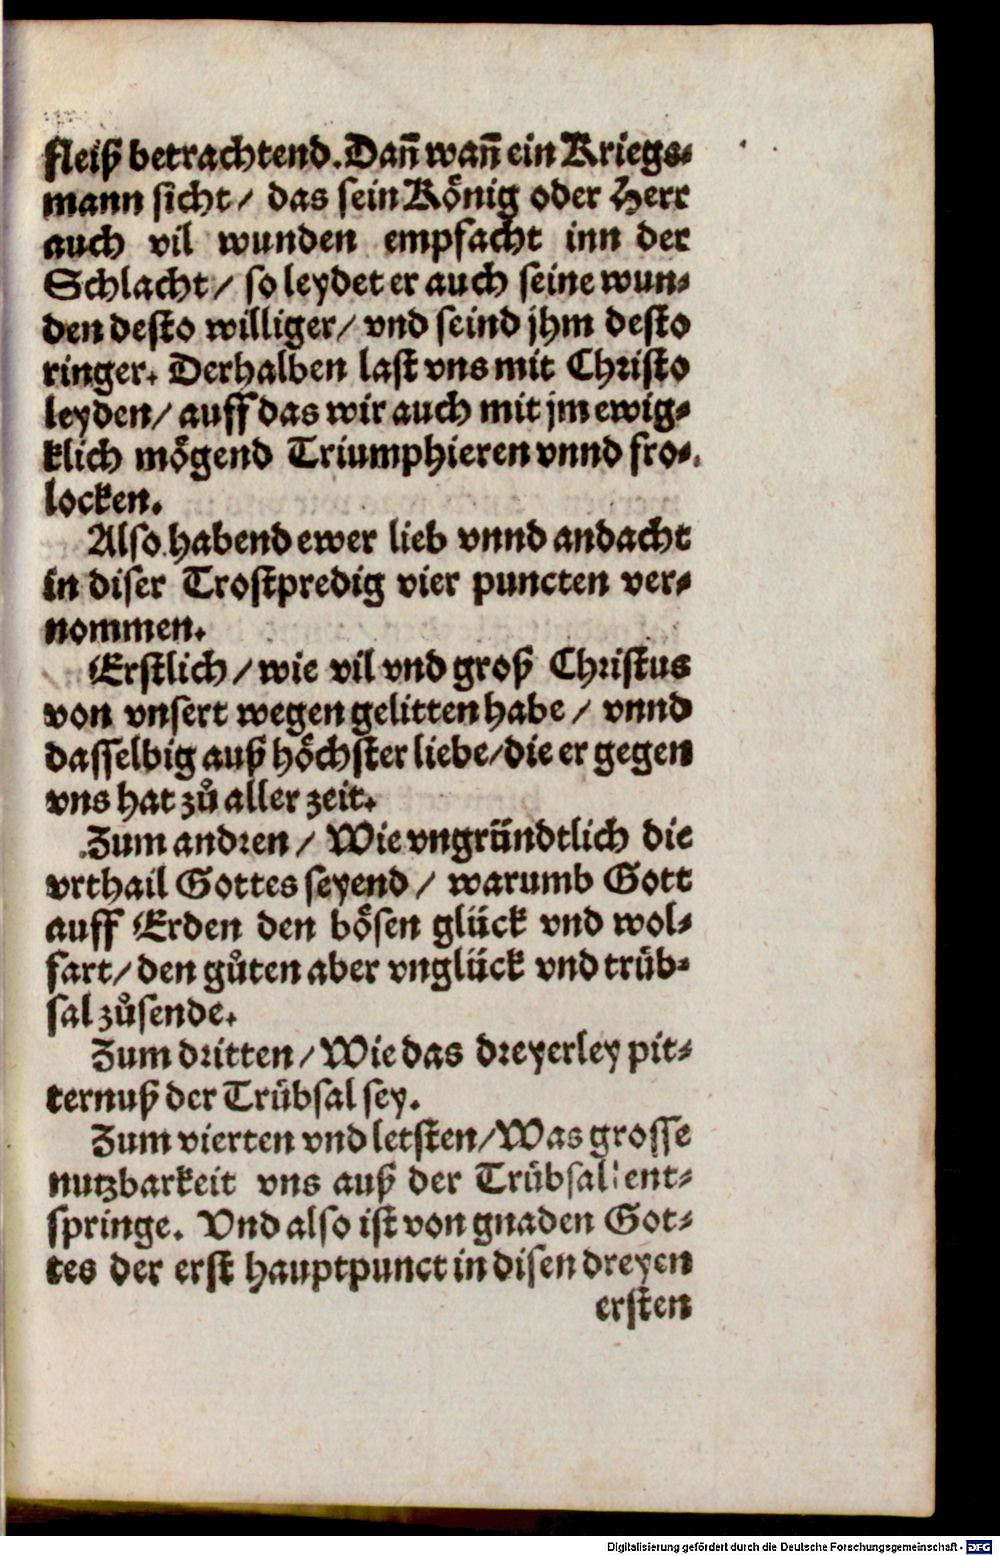 fleiß betrachtend. Dañ wañ ein Kriegs-
mann sicht / das sein König oder Herr
auch vil wunden empfacht inn der
Schlacht / so leydet er auch seine wun-
den desto williger / vnd seind jhm desto
ringer. Derhalben last vns mit Christo
leyden / auff das wir auch mit jm ewig-
klich mögend Triumphieren vnnd fro-
locken.
Also habend ewer lieb vnnd andacht
in diser Trostpredig vier puncten ver-
nommen.
Erstlich / wie vil vnd groß Christus
von vnsert wegen gelitten habe / vnnd
dasselbig auß höchster liebe / die er gegen
vns hat zů aller zeit.
Zum andren / Wie vngründtlich die
vrthail Gottes seyend / warumb Gott
auff Erden den bösen glück vnd wol-
fart / den gůten aber vnglück vnd trüb-
sal zůsende.
Zum dritten / Wie das dreyerley pit-
ternuß der Trübsal sey.
Zum vierten vnd letsten / Was grosse
nutzbarkeit vns auß der Trübsal ent-
springe. Vnd also ist von gnaden Got-
tes der erst hauptpunct in disen dreyen
ersten
Digitalisierung gefördert durch die Deutsche Forschungsgemeinschaft - DFG